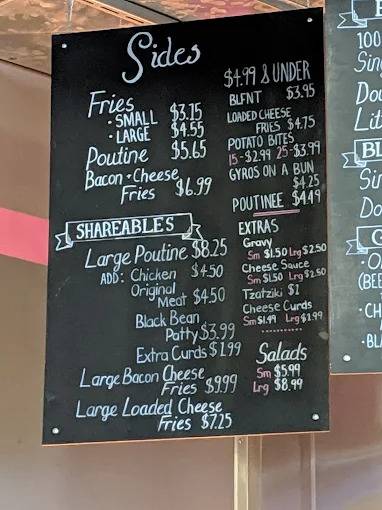 Sides
Fries
• SMALL $3.15
• LARGE $4.55
Poutine $5.65
Bacon • Cheese
Fries $6.99
SHAREABLES
Large Poutine $8.25
ADD: Chicken $4.50
Original
Meat $4.50
Black Bean
Patty $3.99
Extra Curds $1.99
Large Bacon Cheese
Fries $9.99
Large Loaded Cheese
Fries $7.25
$4.99 & UNDER
BLFNT $3.95
LOADED CHEESE
FRIES $4.75
POTATO BITES
15-$2.99 25-$3.99
GYROS ON A BUN
$4.25
POUTINEE $4.49
EXTRAS
Gravy
Sm $1.50 Lrg $2.50
Cheese Sauce
Sm $1.50 Lrg $2.50
Tzatziki $1
Cheese Curds
Sm $1.99 Lrg $1.99
Salads
Sm $5.99
Lrg $8.99
100
Sin
Do
Lit
BL
Sir
Do
G
(BEE
• CH
• BL